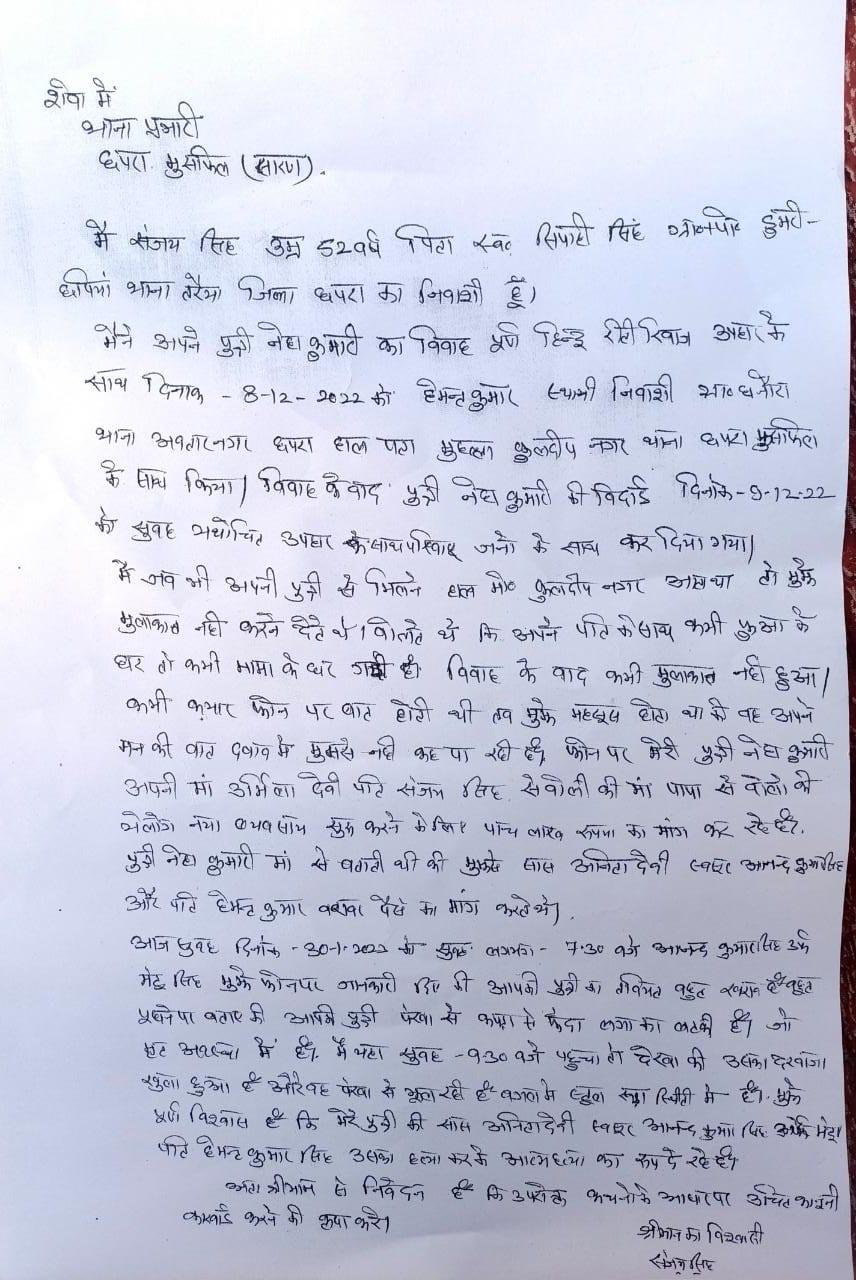 शेवा में
थाना प्रभारी
छपरा मुसफिल (सारण).
मै संजय सिंह उम्र 52 वर्ष पिता स्व० सिपाही सिंह डुमरी-
छपियां थाना तरैया जिला छपरा का निवाशी हूँ।
मैने अपने पुत्री नेहा कुमारी का विवाह पूर्ण हिन्दू रीती रिवाज के
साथ दिनांक - 8-12-2022 को हेमन्त कुमार स्थायी निवाशी
थाना अवतारनगर छपरा हाल पता मुहल्ला कुलदीप नगर थाना छपरा मुसफिल
के साथ किया। विवाह के बाद पुत्री नेहा कुमारी की विदाई दिनांक-9-12-22
को सुवह यथोचित उपहार के साथ परिवार जनो के साथ कर दिया गया।
मै जव भी अपनी पुत्री से मिलने हाल मो० कुलदीप नगर आता था तो मुझे
मुलाकात नही करने देते थे। वोलते थे कि अपने पति के साथ कभी फुआ के
घर तो कभी मामा के घर गयी है। विवाह के वाद कभी मुलाकात नही हुआ।
कभी कभार फोन पर वात होती थी तव मुझे महसूस होता था की वह अपने
मन की वात दवाव मे मुझसे नही कह पा रही है। फोन पर मेरी पुत्री नेहा कुमारी
अपनी मां उर्मिला देवी पति संजय सिंह से वोली की मां पापा से वोलो की
येलोग नया व्यवसाय सुरू करने के लिए पांच लाख रूपया का मांग कर रहे है।
पुत्री नेहा कुमारी मां से वताती थी की मुझसे सास अनिता देवी स्वसुर आनन्द कुमार सिंह
और पति हेमन्त कुमार वरावर पैसे का मांग करते थे।
आज सुवह दिनांक - 30-1-2022 को सुवह लगभग - 7:30 वजे आनन्द कुमार सिंह उर्फ
मेटू सिंह मुझे फोन पर जानकारी दिए की आपकी पुत्री का तवियत वहुत खराव है वहुत
पूछने पर वताए की आपकी पुत्री पंखा से कपड़ा से फंदा लगा कर लटकी है। जो
मृत अवस्था में है। मै यहा सुवह - 9:30 वजे पहुंचा तो देखा की उसका दरवाजा
खुला हुआ है और वह पंखा से झुल रही है वगल मे स्टुल खड़ा स्थिती मे है। मुझे
पूर्ण विश्वास है कि मेरे पुत्री की सास अनिता देवी स्वसुर आनन्द कुमार सिंह उर्फ मेटू
पति हेमन्त कुमार सिंह उसका हत्या करके आत्महत्या का रूप दे रहे है।
अतः श्रीमान से निवेदन है कि उपरोक्त कथनो के आधार पर उचित कानूनी
कारवाई करने की कृपा करें।
श्रीमान का विश्वाशी
संजय सिंह